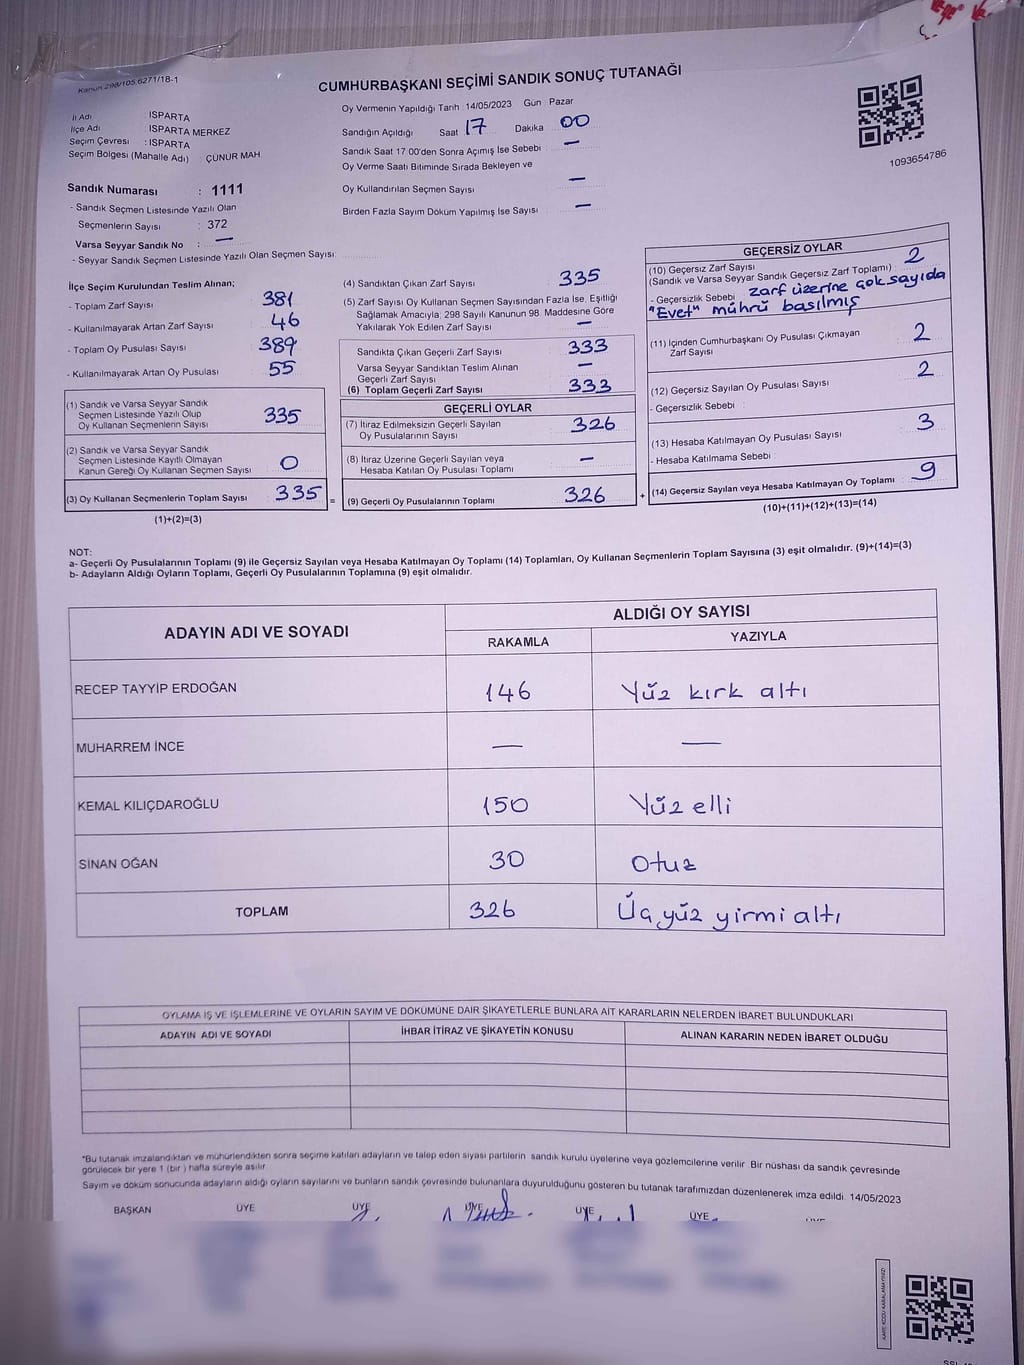 Kanun 298/105.6271/18-1
CUMHURBAŞKANI SEÇİMİ SANDIK SONUÇ TUTANAĞI
İl Adı ISPARTA
İlçe Adı ISPARTA MERKEZ
Seçim Çevresi : ISPARTA
Seçim Bölgesi (Mahalle Adı) : ÇÜNÜR MAH
Oy Vermenin Yapıldığı Tarih 14/05/2023 Gün Pazar
Sandığın Açıldığı Saat 17 Dakika 00
Sandık Saat 17:00'den Sonra Açımış İse Sebebi : —
Oy Verme Saati Bitiminde Sırada Bekleyen ve
Oy Kullandırılan Seçmen Sayısı —
Birden Fazla Sayım Döküm Yapılmış İse Sayısı —
1093654786
Sandık Numarası : 1111
- Sandık Seçmen Listesinde Yazılı Olan
Seçmenlerin Sayısı : 372
Varsa Seyyar Sandık No : —
- Seyyar Sandık Seçmen Listesinde Yazılı Olan Seçmen Sayısı:
İlçe Seçim Kurulundan Teslim Alınan;
- Toplam Zarf Sayısı 381
- Kullanılmayarak Artan Zarf Sayısı 46
- Toplam Oy Pusulası Sayısı 389
- Kullanılmayarak Artan Oy Pusulası 55
(1) Sandık ve Varsa Seyyar Sandık
Seçmen Listesinde Yazılı Olup
Oy Kullanan Seçmenlerin Sayısı 335
(2) Sandık ve Varsa Seyyar Sandık
Seçmen Listesinde Kayıtlı Olmayan
Kanun Gereği Oy Kullanan Seçmen Sayısı 0
(3) Oy Kullanan Seçmenlerin Toplam Sayısı 335 =
(1)+(2)=(3)
(4) Sandıktan Çıkan Zarf Sayısı 335
(5) Zarf Sayısı Oy Kullanan Seçmen Sayısından Fazla İse, Eşitliği
Sağlamak Amacıyla; 298 Sayılı Kanunun 98. Maddesine Göre
Yakılarak Yok Edilen Zarf Sayısı —
Sandıkta Çıkan Geçerli Zarf Sayısı 333
Varsa Seyyar Sandıktan Teslim Alınan
Geçerli Zarf Sayısı —
(6) Toplam Geçerli Zarf Sayısı 333
GEÇERLİ OYLAR
(7) İtiraz Edilmeksizin Geçerli Sayılan
Oy Pusulalarının Sayısı 326
(8) İtiraz Üzerine Geçerli Sayılan veya
Hesaba Katılan Oy Pusulası Toplamı —
(9) Geçerli Oy Pusulalarının Toplamı 326 +
GEÇERSİZ OYLAR
(10) Geçersiz Zarf Sayısı 2
(Sandık ve Varsa Seyyar Sandık Geçersiz Zarf Toplamı)
- Geçersizlik Sebebi zarf üzerine çok sayıda
"Evet" mührü basılmış
(11) İçinden Cumhurbaşkanı Oy Pusulası Çıkmayan
Zarf Sayısı 2
(12) Geçersiz Sayılan Oy Pusulası Sayısı 2
- Geçersizlik Sebebi :
(13) Hesaba Katılmayan Oy Pusulası Sayısı 3
- Hesaba Katılmama Sebebi :
(14) Geçersiz Sayılan veya Hesaba Katılmayan Oy Toplamı 9
(10)+(11)+(12)+(13)=(14)
NOT:
a- Geçerli Oy Pusulalarının Toplamı (9) ile Geçersiz Sayılan veya Hesaba Katılmayan Oy Toplamı (14) Toplamları, Oy Kullanan Seçmenlerin Toplam Sayısına (3) eşit olmalıdır. (9)+(14)=(3)
b- Adayların Aldığı Oyların Toplamı, Geçerli Oy Pusulalarının Toplamına (9) eşit olmalıdır.
ADAYIN ADI VE SOYADI
ALDIĞI OY SAYISI
RAKAMLA YAZIYLA
RECEP TAYYİP ERDOĞAN 146 Yüz kırk altı
MUHARREM İNCE — —
KEMAL KILIÇDAROĞLU 150 Yüz elli
SİNAN OĞAN 30 Otuz
TOPLAM 326 Üç yüz yirmi altı
OYLAMA İŞ VE İŞLEMLERİNE VE OYLARIN SAYIM VE DÖKÜMÜNE DAİR ŞİKAYETLERLE BUNLARA AİT KARARLARIN NELERDEN İBARET BULUNDUKLARI
ADAYIN ADI VE SOYADI İHBAR İTİRAZ VE ŞİKAYETİN KONUSU ALINAN KARARIN NEDEN İBARET OLDUĞU
*Bu tutanak imzalandıktan ve mühürlendikten sonra seçime katılan adayların ve talep eden siyası partilerin sandık kurulu üyelerine veya gözlemcilerine verilir. Bir nüshası da sandık çevresinde
görülecek bir yere 1 (bir ) hafta süreyle asılır.
Sayım ve döküm sonucunda adayların aldığı oyların sayılarını ve bunların sandık çevresinde bulunanlara duyurulduğunu gösteren bu tutanak tarafımızdan düzenlenerek imza edildi. 14/05/2023
BAŞKAN ÜYE ÜYE ÜYE ÜYE ÜYE